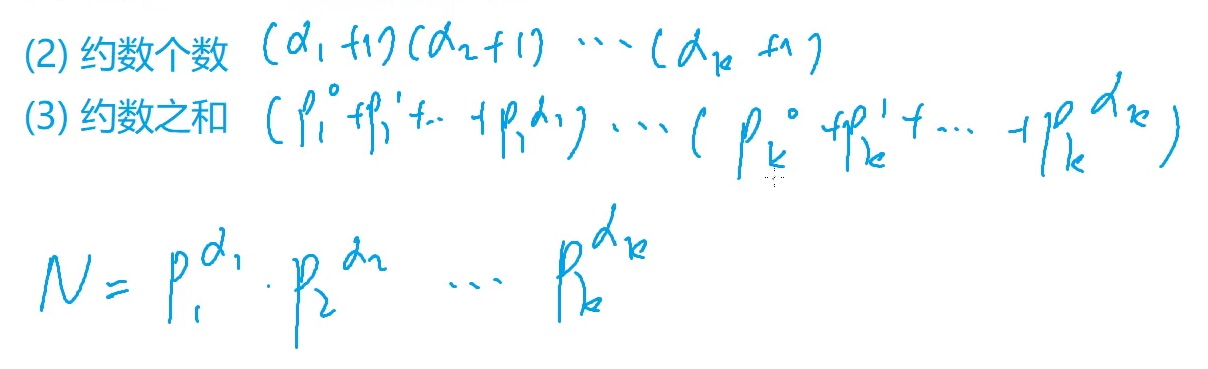 (2) 约数个数 (α₁+1)(α₂+1) ⋯ (αₖ+1)
(3) 约数之和 (p₁⁰+p₁¹+⋯+p₁^α₁) ⋯ (pₖ⁰+pₖ¹+⋯+pₖ^αₖ)
N = p₁^α₁ · p₂^α₂ ⋯ pₖ^αₖ